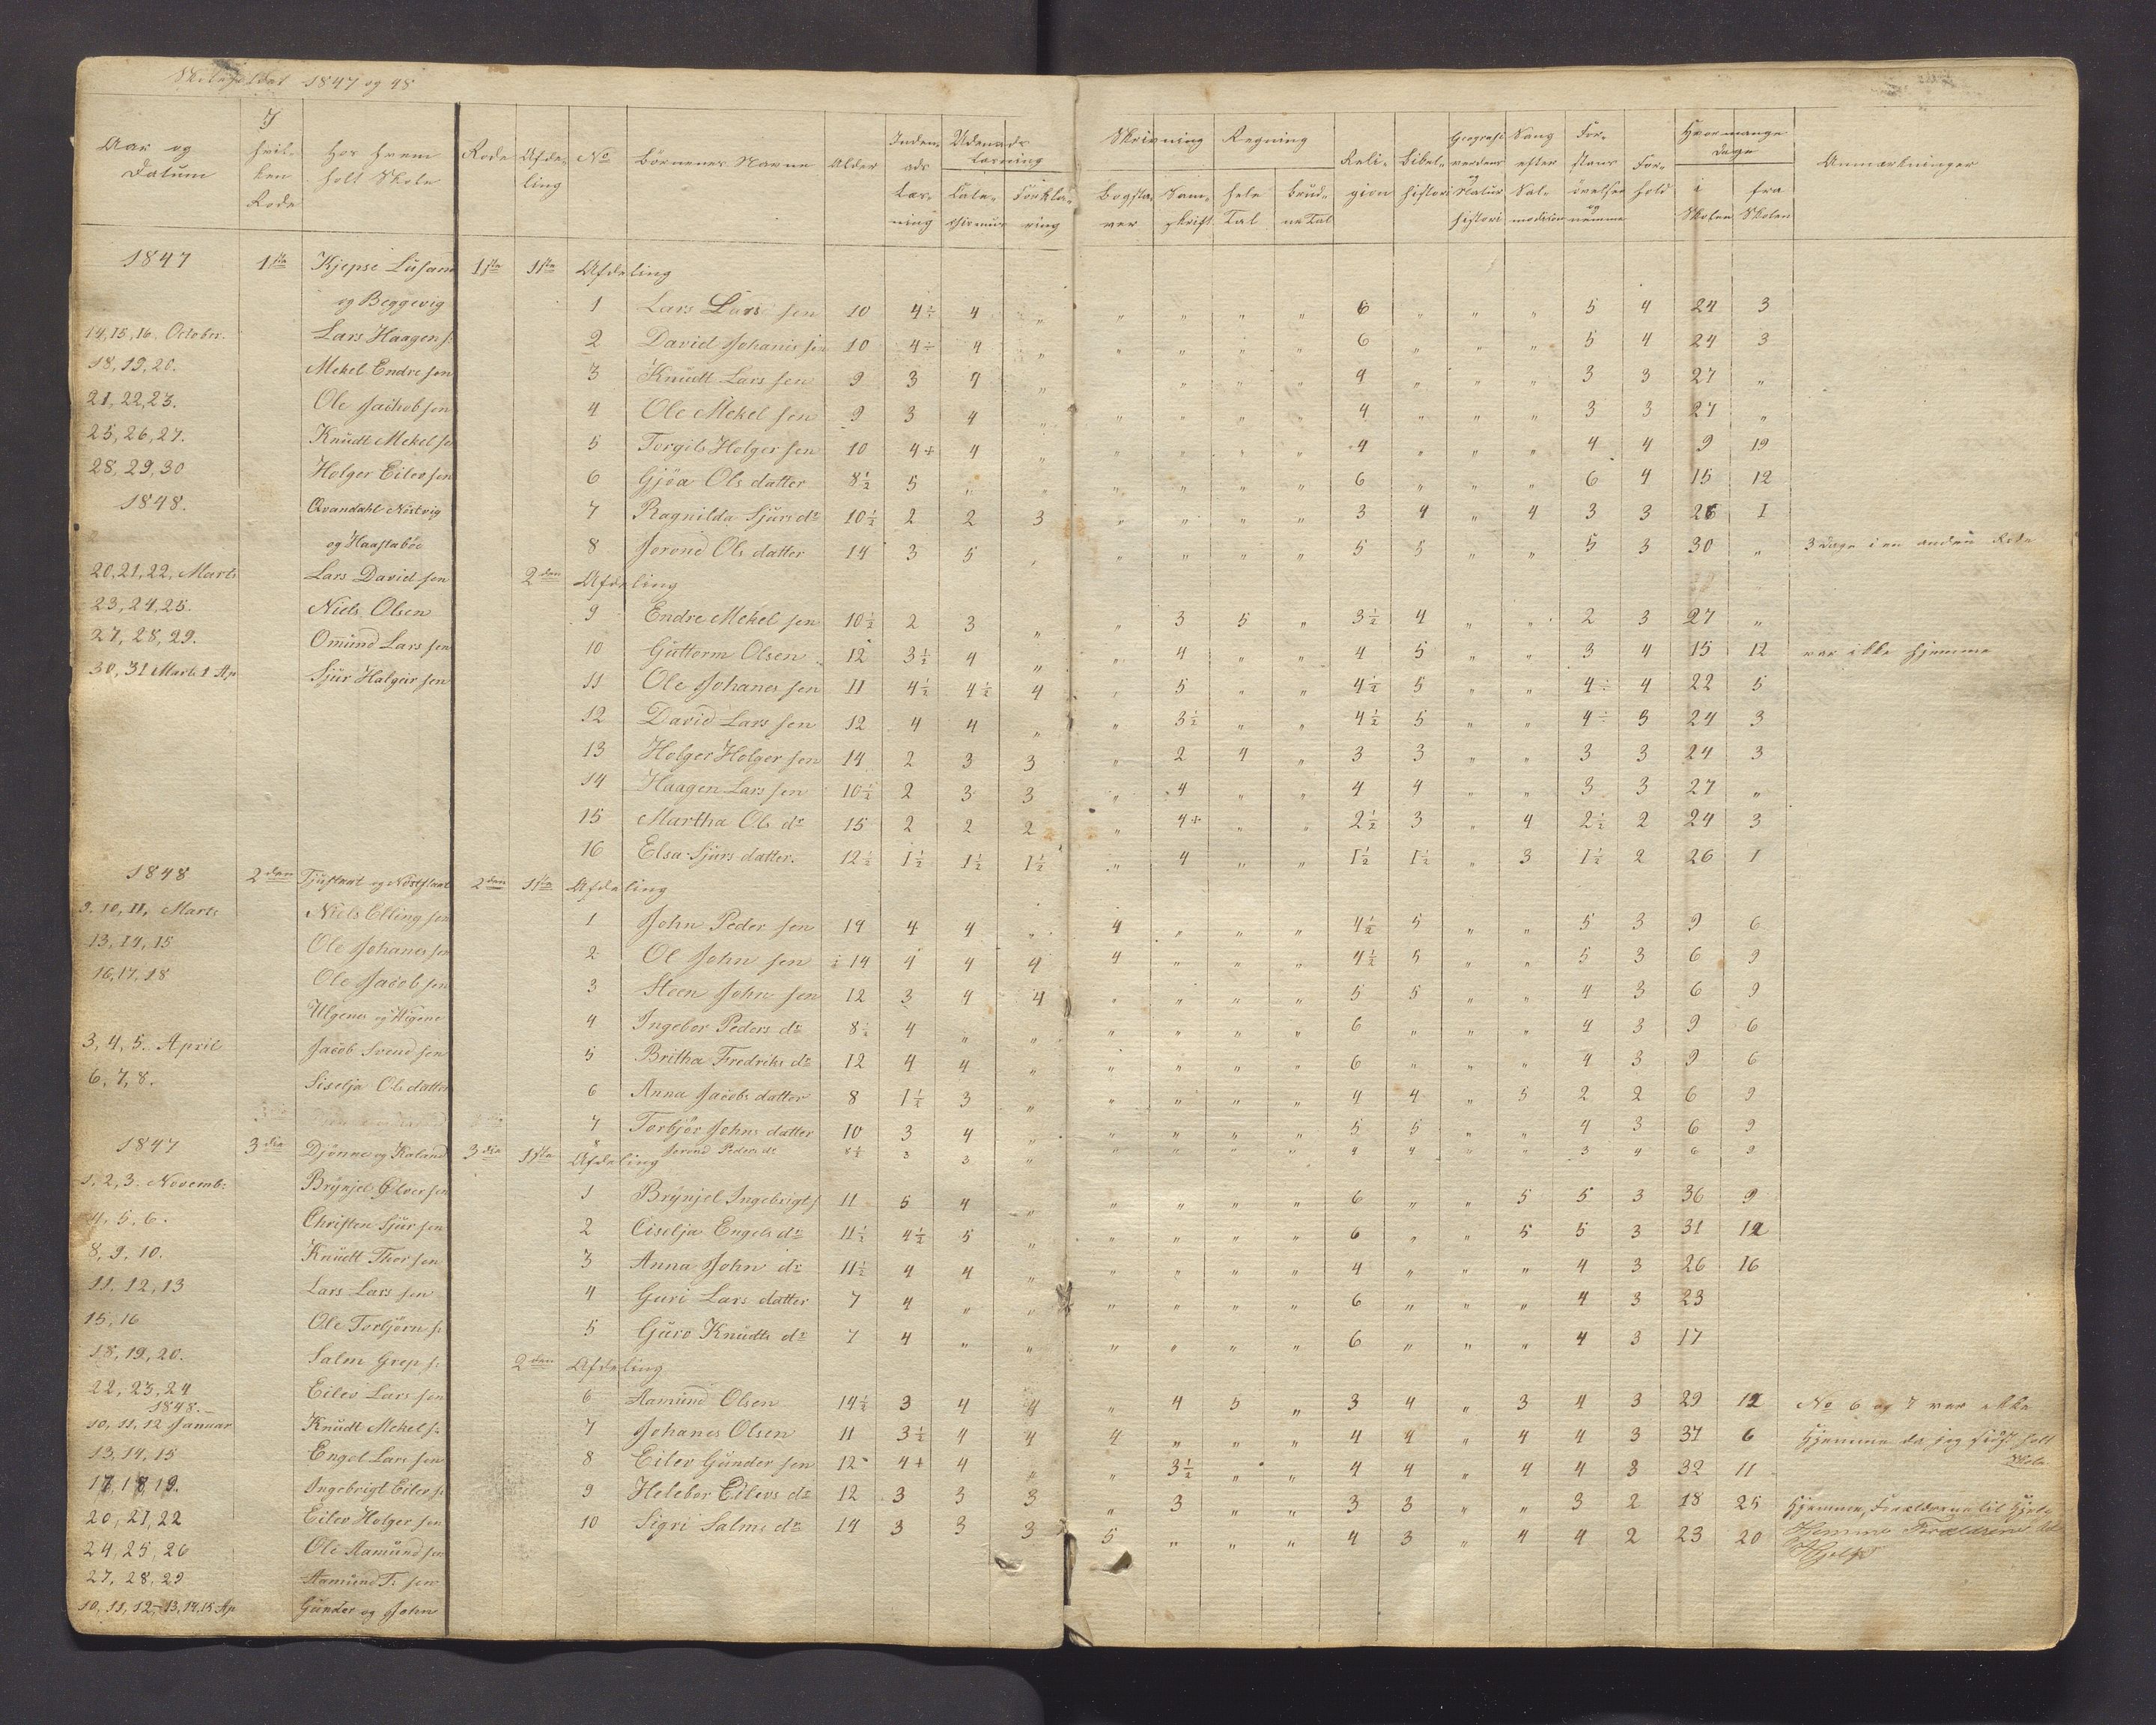 1847 og 48
Aar og Datum | I hvilken Rode | Hos hvem holt Skole | Rode | Afdeling | No | Börnenes Navne | Alder | Indenads Læsning | Udenads Læsning: Catechismus | Forklaring | Skrivning: Bogstaver | Samskrift | Regning: hele Tal | brudne Tal | Religion | Bibelhistori | Geografi verdens og Natur histori | Sang efter Salmodicon | Forstans övelser og nemme | Forhold | Hvor mange Dage: i Skolen | fra Skolen | Anmærkninger
1847 | 1ste | Kjepse Lusand | 1ste | 1ste | Afdeling
og Beggevig | 1 | Lars Lars sen | 10 | 4÷ | 4 | " | " | " | " | " | 6 | " | " | " | 5 | 4 | 24 | 3
14, 15, 16. October. | Lars Haagen s: | 2 | David Johanes sen | 10 | 4÷ | 4 | " | " | " | " | " | 6 | " | " | " | 5 | 4 | 24 | 3
18, 19, 20. | Mekel Endre sen | 3 | Knudt Lars sen | 9 | 3 | 4 | " | " | " | " | 4 | " | " | " | 3 | 3 | 27 | "
21, 22, 23. | Ole Jachob sen | 4 | Ole Mekel sen | 9 | 3 | 4 | " | " | " | " | " | 4 | " | " | " | 3 | 3 | 27 | "
25, 26, 27. | Knudt Mekel se | 5 | Torgils Holger sen | 10 | 4+ | 4 | " | " | " | " | " | 4 | " | " | " | 4 | 4 | 9 | 19
28, 29, 30 | Holger Eilev sen | 6 | Gjöa Ols datter | 8½ | 5 | " | " | " | " | " | " | 6 | " | " | " | 6 | 4 | 15 | 12
1848. | Qvandahl Nöstvig | 7 | Ragnilda Sjurs dr | 10½ | 2 | 2 | 3 | " | " | " | " | 3 | 4 | " | 4 | 3 | 3 | 26 | 1
og Haastaböe | 8 | Jorond Ols datter | 14 | 3 | 5 | " | " | " | " | 5 | 5 | " | " | 5 | 3 | 30 | " | 3 Dage i en anden Rode
20, 21, 22, Marts | Lars David sen | 2den | Afdeling
23, 24, 25. | Niels Olsen | 9 | Endre Mekel sen | 10½ | 2 | 3 | " | " | 3 | 5 | " | 3½ | 4 | " | " | 2 | 3 | 27 | "
27, 28, 29. | Omund Lars sen | 10 | Guttorm Olsen | 12 | 3½ | 4 | " | " | 4 | " | " | 4 | 5 | " | " | 3 | 4 | 15 | 12 | var ikke hjemme
30, 31 Marts 1 Ap | Sjur Halgeir sen | 11 | Ole Johanes sen | 11 | 4½ | 4½ | 4 | " | 5 | " | " | 4½ | 5 | " | " | 4÷ | 4 | 22 | 5
12 | David Lars sen | 12 | 4 | 4 | " | " | 3½ | " | " | 4½ | 5 | " | " | 4÷ | 3 | 24 | 3
13 | Holger Holger sen | 14 | 2 | 3 | 3 | " | 2 | 4 | " | 3 | 3 | " | " | 3 | 3 | 24 | 3
14 | Haagen Lars sen | 10½ | 2 | 3 | 3 | " | 4 | " | " | 4 | 4 | " | " | 3 | 3 | 27 | "
15 | Martha Ols dr | 15 | 2 | 2 | 2 | " | 4+ | " | " | 2½ | 3 | " | 4 | 2½ | 2 | 24 | 3
16 | Elsa Sjurs datter. | 12½ | 1½ | 1½ | 1½ | " | 4 | " | " | 1½ | 1½ | " | 3 | 1½ | 2 | 26 | 1
1848 | 2den | Tjuflaat og Nestflaat | 2den | 1ste | Afdeling
9, 10, 11, Marts | Niels Elling sen | 1 | John Peder sen | 14 | 4 | 4 | " | 4 | " | " | " | 4½ | 5 | " | " | 5 | 3 | 9 | 6
13, 14, 15 | Ole Johanes sen | 2 | Ol John sen | 14 | 4 | 4 | 4 | 4 | " | " | " | 4½ | 5 | " | " | 5 | 3 | 6 | 9
16, 17, 18 | Ole Jacob sen | 3 | Steen John sen | 12 | 3 | 4 | 4 | " | " | " | " | 5 | 5 | " | " | 4 | 3 | 6 | 9
Ulgenes og Wigene | 4 | Ingebor Peders dr | 8½ | 4 | " | " | " | " | " | " | 6 | " | " | " | 4 | 3 | 9 | 6
3, 4, 5. April | Jacob Svend sen | 5 | Britha Fredriks dr | 12 | 4 | 4 | " | " | " | " | " | 6 | " | " | " | 4 | 3 | 9 | 6
6, 7, 8. | Siselja Ols datter | 6 | Anna Jacobs datter | 8 | 1½ | 3 | " | " | " | " | " | 4 | 4 | " | 5 | 2 | 2 | 6 | 9
7 | Torbjör Johns datter | 10 | 3 | 4 | " | " | " | " | " | 5 | 5 | " | " | 4 | 3 | 6 | 9
8 | Jorond Peders dr | 8½ | 3 | 3 | " | " | " | " | " | 4 | 4 | " | " | 3 | 4 | 6 | 9
1847 | 3die | Djönne og Roland | 3die | 1ste | Afdeling
1, 2, 3. Novemb: | Brynjel Elver sen | 1 | Brynjel Ingebrigt s | 11 | 5 | 4 | " | " | " | " | " | 6 | " | " | 5 | 5 | 3 | 36 | 9
4, 5, 6. | Christen Sjur sen | 2 | Ciselja Engels dr | 11½ | 4½ | 5 | " | " | " | " | " | 6 | " | " | 5 | 5 | 3 | 31 | 12
8, 9, 10. | Knudt Thor sen | 3 | Anna John dr | 11½ | 4 | 4 | " | " | " | " | " | 4 | " | " | " | 4 | 3 | 26 | 16
11, 12, 13 | Lars Lars sen | 4 | Guri Lars datter | 7 | 4 | " | " | " | " | " | " | 6 | " | " | " | 4 | 3 | 23
15, 16 | Ole Torbjörn s: | 5 | Guro Knudts dr | 7 | 4 | " | " | " | " | " | " | 6 | " | " | " | 4 | 3 | 17
18, 19, 20. | Salm Grep s: | 2den | Afdeling
22, 23, 24 | Eilev Lars sen | 6 | Aamund Olsen | 14½ | 3 | 4 | 4 | " | 4 | 5 | " | 3 | 4 | " | 3 | 4 | 3 | 29 | 12 | No 6 og 7 var ikke
1848.
10, 11, 12 Januar | Knudt Mekel s: | 7 | Johanes Olsen | 11 | 3½ | 4 | 4 | 4 | " | " | " | 4 | 4 | " | 4 | 4 | 3 | 37 | 6 | Hjemme da jeg sidst holt Skole
13, 14, 15 | Engel Lars sen | 8 | Eilev Gunder sen | 12 | 4+ | 4 | " | " | 3½ | " | " | 4 | 4 | " | 4 | 4 | 3 | 32 | 11
17, 18, 19. | Ingebrigt Eilev s: | 9 | Helebor Eilevs dr | 12 | 3 | 3 | 3 | " | 3 | " | " | 3 | 3 | " | " | 3 | 2 | 18 | 25 | Hjemme, Forældrene til Hjelp
20, 21, 22 | Eilev Holger sen | 10 | Sigri Salms dr | 14 | 3 | 3 | 3 | 5 | " | " | " | 4 | 3 | " | 4 | 4 | 2 | 23 | 20 | Hjemme Forældrene til Hjelp
24, 25, 26 | Ole Aamund sen
27, 28, 29 | Aamund T: sen
10, 11, 12 – 13, 14, 15 Ap | Gunder og John